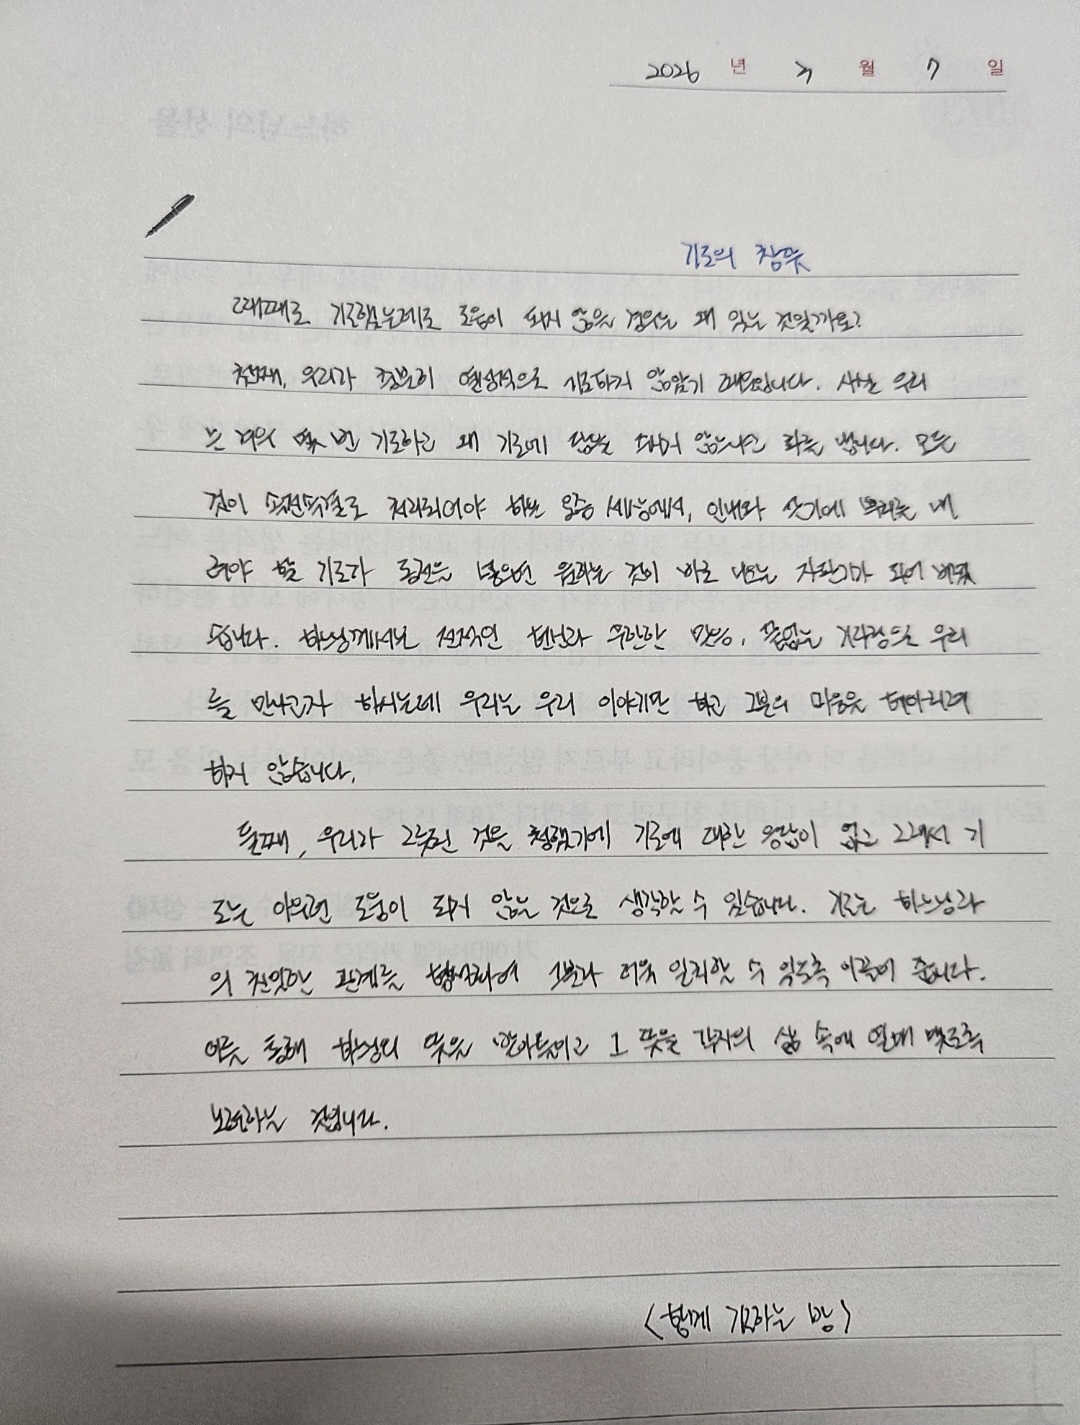 2026 년 3 월 7 일
기도의 참뜻
때때로 기도했는데도 도움이 되지 않은 경우는 왜 있는 것일까요?
첫째, 우리가 충분히 열성적으로 기도하지 않았기 때문입니다. 사실 우리
는 거의 몇 번 기도하고 왜 기도에 답을 주시지 않느냐고 화를 냅니다. 모든
것이 속전속결로 처리되어야 하는 요즘 세상에서, 인내와 끈기에 뿌리를 내
려야 할 기도가 동전을 넣으면 원하는 것이 바로 나오는 자판기가 되어 버렸
습니다. 하느님께서는 전적인 헌신과 무한한 믿음, 끝없는 사랑으로 우리
를 만나고자 하시는데 우리는 우리 이야기만 하고 그분의 마음을 헤아리려
하지 않습니다.
둘째, 우리가 그릇된 것을 청했기에 기도에 대한 응답이 없고 그래서 기
도는 아무런 도움이 되지 않는 것으로 생각할 수 있습니다. 기도는 하느님과
의 친밀한 관계를 형성하여 그분과 더욱 일치할 수 있도록 이끌어 줍니다.
이를 통해 하느님의 뜻을 받아들이고 그 뜻을 각자의 삶 속에 열매 맺도록
노력하는 것입니다.
<함께 기도하는 밤>